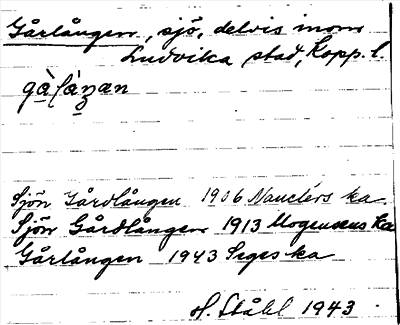 Gårlången, sjö, delvis inom
Ludvika stad, Kopp. l.
Sjön Gårdlången 1906 Nauclérs ka
Sjön Gårdlången 1913 Mogensens ka
Gårlången 1943 Seges ka
H. Ståhl 1943.